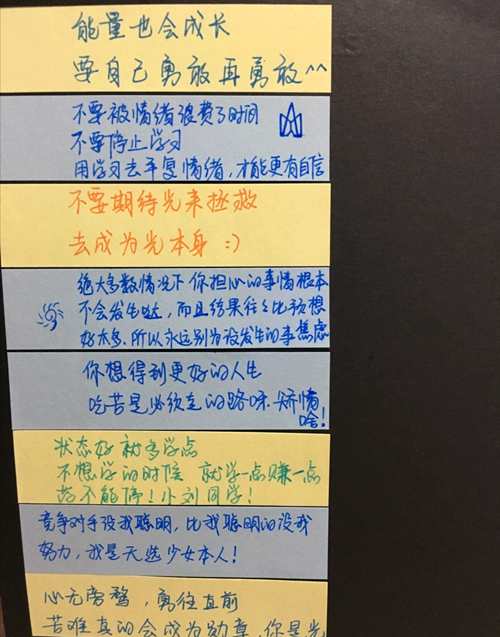 能量也会成长
要自己勇敢再勇敢^^
不要被情绪浪费了时间
不要停止学习
用学习去平复情绪，才能更有自信
不要期待光来拯救
去成为光本身 :)
绝大多数情况下你担心的事情根本
不会发生哒，而且结果往往比预想
好太多，所以永远别为没发生的事焦虑
你想得到更好的人生
吃苦是必须走的路呀 矫情
啥！
状态好就多学点
不想学的时候 就学一点赚一点
总不能停！小刘同学！
竞争对手没我聪明，比我聪明的没我
努力，我是天选少女本人！
心无旁骛，勇往直前
苦难真的会成为勋章，你是光